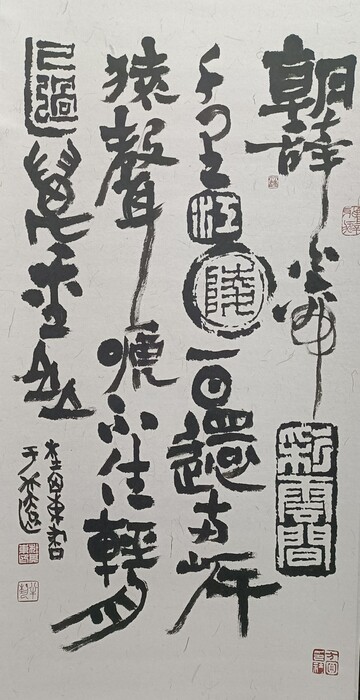 朝辭白帝彩雲間
千里江陵一日還兩岸
猿聲嗁不住輕舟
已過萬重山